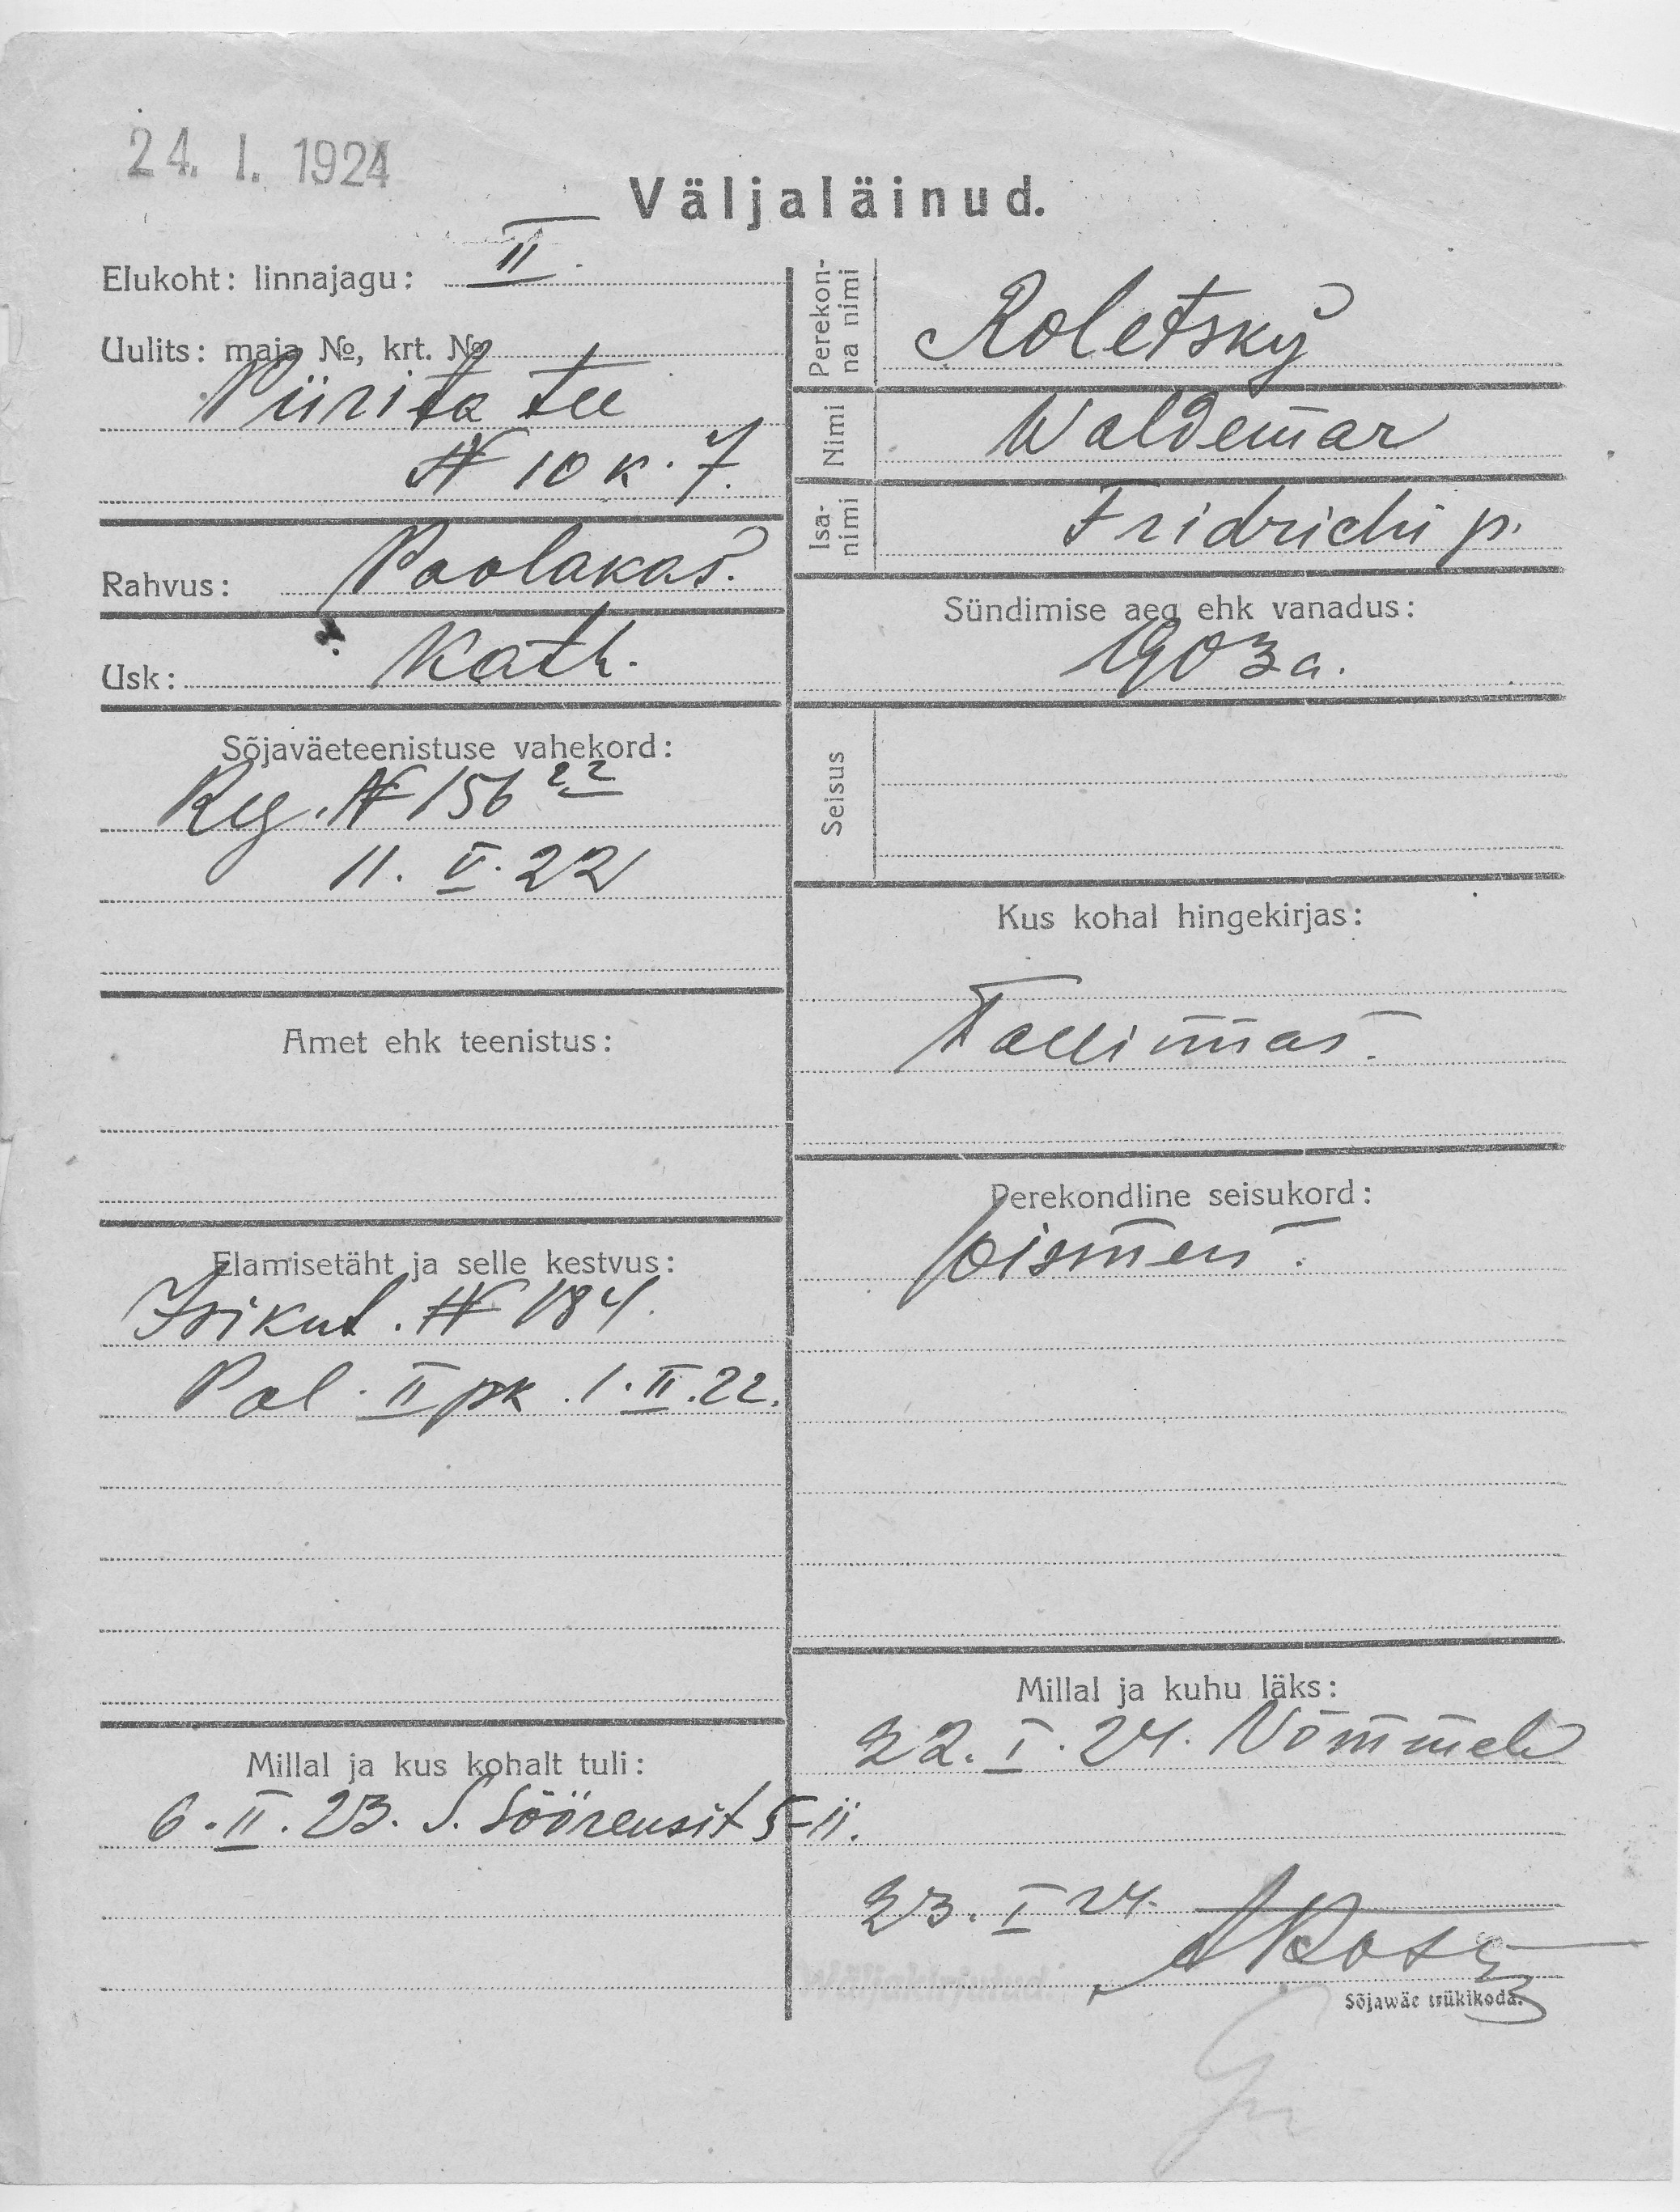 24. I. 1924
Väljaläinud.
Elukoht: linnajagu: II.
Uulits: maja №, krt. №
Piirita tee
№ 10 k. 7.
Rahvus: Poolakas.
Usk: Kath.
Sõjaväeteenistuse vahekord:
Reg. № 156 22
11. V. 22
Amet ehk teenistus:
Elamisetäht ja selle kestvus:
Isikut. № 184.
Pol. II jsk. 1. II. 22.
Millal ja kus kohalt tuli:
6. II. 23. S. Söörensit 5-11.
Perekon-
na nimi
Roletsky
Nimi
Waldemar
Isa-
nimi
Fridrichi p.
Sündimise aeg ehk vanadus:
1903 a.
Seisus
Kus kohal hingekirjas:
Tallinnas.
Perekondline seisukord:
poismees.
Millal ja kuhu läks:
22. I. 24. Nõmmele
23. I 24.
Sõjawäe trükikoda.